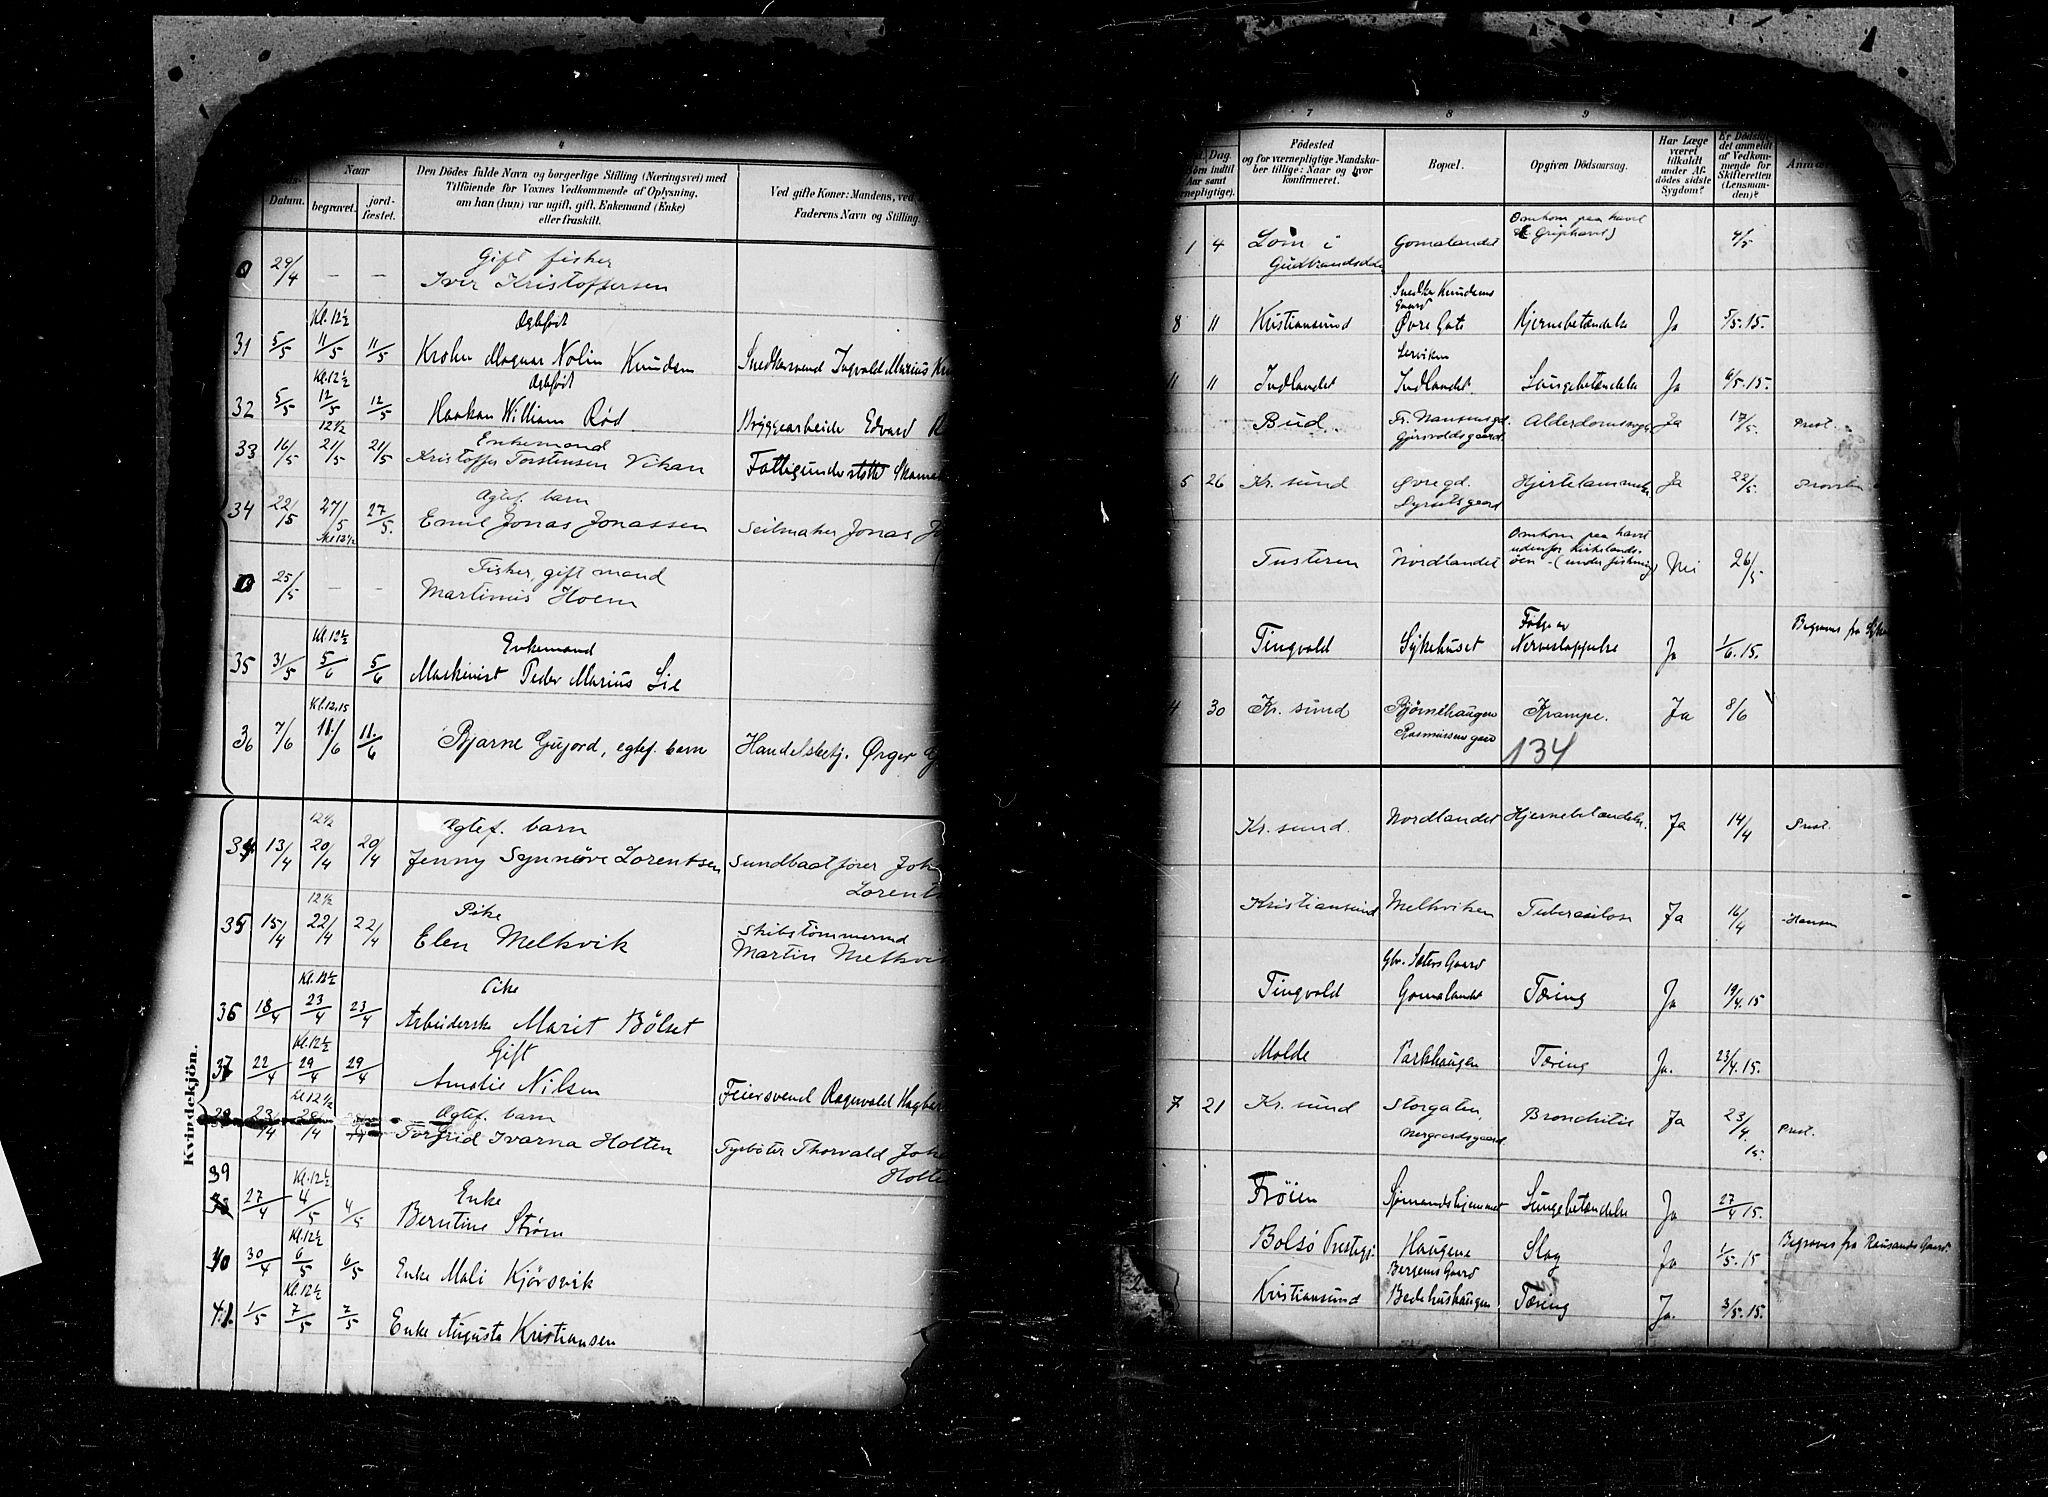 4
Naar
Datum.
begravet.
jord-
fæstet.
Den Dödes fulde Navn og borgerlige Stilling (Næringsvei) med
Tilföiende for Voxnes Vedkommende af Oplysning,
om han (hun) var ugift, gift, Enkemand (Enke)
eller fraskilt.
Ved gifte Koner: Mandens, ved
Faderens Navn og Stilling.
29/4 — — Gift fisker
Iver Kristoffersen
Kl. 12½ Ægtefødt
31 5/5 11/5 11/5 Krohn Magnar Nolin Knudsen Snedkersvend Ingvald Marius
Kl. 12½ Ægtefødt
32 5/5 12/5 12/5 Haakon William Rød Bryggearbeide Edvard
12½ Enkemand
33 16/5 21/5 21/5 Kristoffer Torstensen Vikan Fattigunderstøttet
Ægtef. barn
34 22/5 27/5 27/5. Emil Jonas Jonassen Seilmaker Jonas
Kl 12½
25/5 — — Fisker, gift mand
Martinus Hoem
Kl. 12½ Enkemand
35 31/5 5/6 5/6 Maskinist Peder Marius Lie
Kl. 12.15
36 7/6 11/6 11/6 Bjarne Gujord, egtef. barn Handelsbetj. Ørger
Kvindekjön.
12½ Ægtef. barn
34 13/4 20/4 20/4 Jenny Synnöve Lorentsen Sundbaatförer Joh
Lorents
12½ Pike
35 15/4 22/4 22/4 Elen Melkvik Skibstömmermd
Martin Melkvik
Kl. 12½ Pike
36 18/4 23/4 23/4 Arbeiderske Marit Bölset
Kl. 12½ Gift
37 22/4 29/4 29/4 Amalie Nilsen Feiersvend Ragnvald
Kl 12½ Ægtef. barn
38 23/4 28/4 Torfrid Ivarna Holten Thorvald Joh
Holte
39
Kl. 12½ Enke
27/4 4/5 4/5 Berntine Strøm
Kl. 12½
40 30/4 6/5 6/5 Enke Mali Kjörsvik
Kl. 12½
41. 1/5 7/5 7/5 Enke Augusta Kristiansen
7 8 9
Dag.
Födested
og for værnepligtige Mandska-
ber tillige: Naar og hvor
konfirmeret.
Bopæl.
Opgiven Dödsaarsag.
Har Læge
været
tilkaldt
under Af-
dödes sidste
Sygdom?
Er Dödsfal-
det anmeldt
af Vedkom-
mende for
Skifteretten
(Lensman-
den)?
1 4 Lom i
Gudbrandsdalen Gomalandet Omkom paa havet
Griphavet) 4/5
Snedker Knudsens
Gaard
8 11 Kristiansund Øvre Gate Hjernebetændelse Ja 5/5.15.
11 11 Indlandet Indlandet Lungebetændelse Ja 6/5.15.
Bud. Fr. Nansensgd. Alderdomssvaghed Ja 17/5. Prest.
5 26 Kr. sund Øvregd. Hjertelammelse Ja 22/5.
Tusteren Nordlandet Omkom paa havet
udenfor Kirkelands-
öen - (under fiskning) Nei 26/5
Tingvold Sykehuset Følge av
Nerveslappelse Ja 1/6.15. Begraves fra
4 30 Kr. sund Björnehaugen
Rasmussens gaard Krampe. Ja 8/6
134
Kr. sund. Nordlandet Hjernebetændelse. Ja 14/4 Prest.
Kristiansund Melkviken Tuberculose Ja 16/4 Hansen
Tingvold Gomalandet Tæring Ja 19/4.15
Molde Parkhaugen Tæring Ja. 23/4.15.
7 21 Kr. sund Storgaten,
Nergaardsgaard. Bronchitis Ja 23/4 15. Prest.
Frøien Sjømandshjemmet Lungebetændelse Ja 27/4 15.
Bolsö Prestegj. Haugene Slag Ja 1/5.15 Begraves fra Rausands Gaard
Bergems Gaard
Kristiansund Bedehushaugen Tæring Ja. 3/5.15.